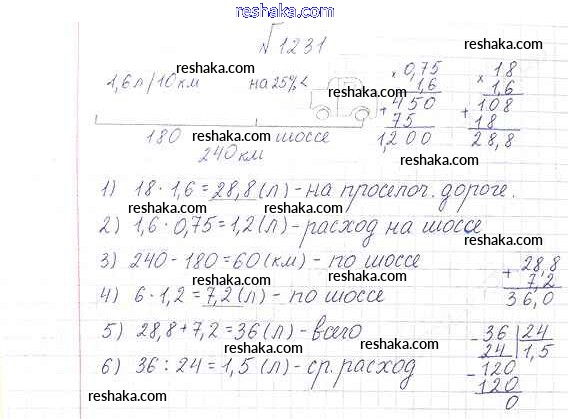 www.reshaka.ru
√1231
reshaka.com
1,6 л/10 км на 25% <
reshaka.com
180 reshaka.com шоссе
240 км
reshaka.com
× 0,75
1,6
+ 450
75
1,200
reshaka.com
× 18
1,6
+ 108
18
28,8
reshaka.com
1) 18 · 1,6 = 28,8 (л) - на просёлоч. дороге.
reshaka.com
2) 1,6 · 0,75 = 1,2 (л) - расход на шоссе
reshaka.com
3) 240 - 180 = 60 (км) - по шоссе
reshaka.com
4) 6 · 1,2 = 7,2 (л) - по шоссе
reshaka.com
+ 28,8
7,2
36,0
5) 28,8 + 7,2 = 36 (л) - всего
reshaka.com
6) 36 : 24 = 1,5 (л) - ср. расход
reshaka.com
- 36 | 24
24 | 1,5
- 120
120
0
reshaka.com
www.reshaka.ru